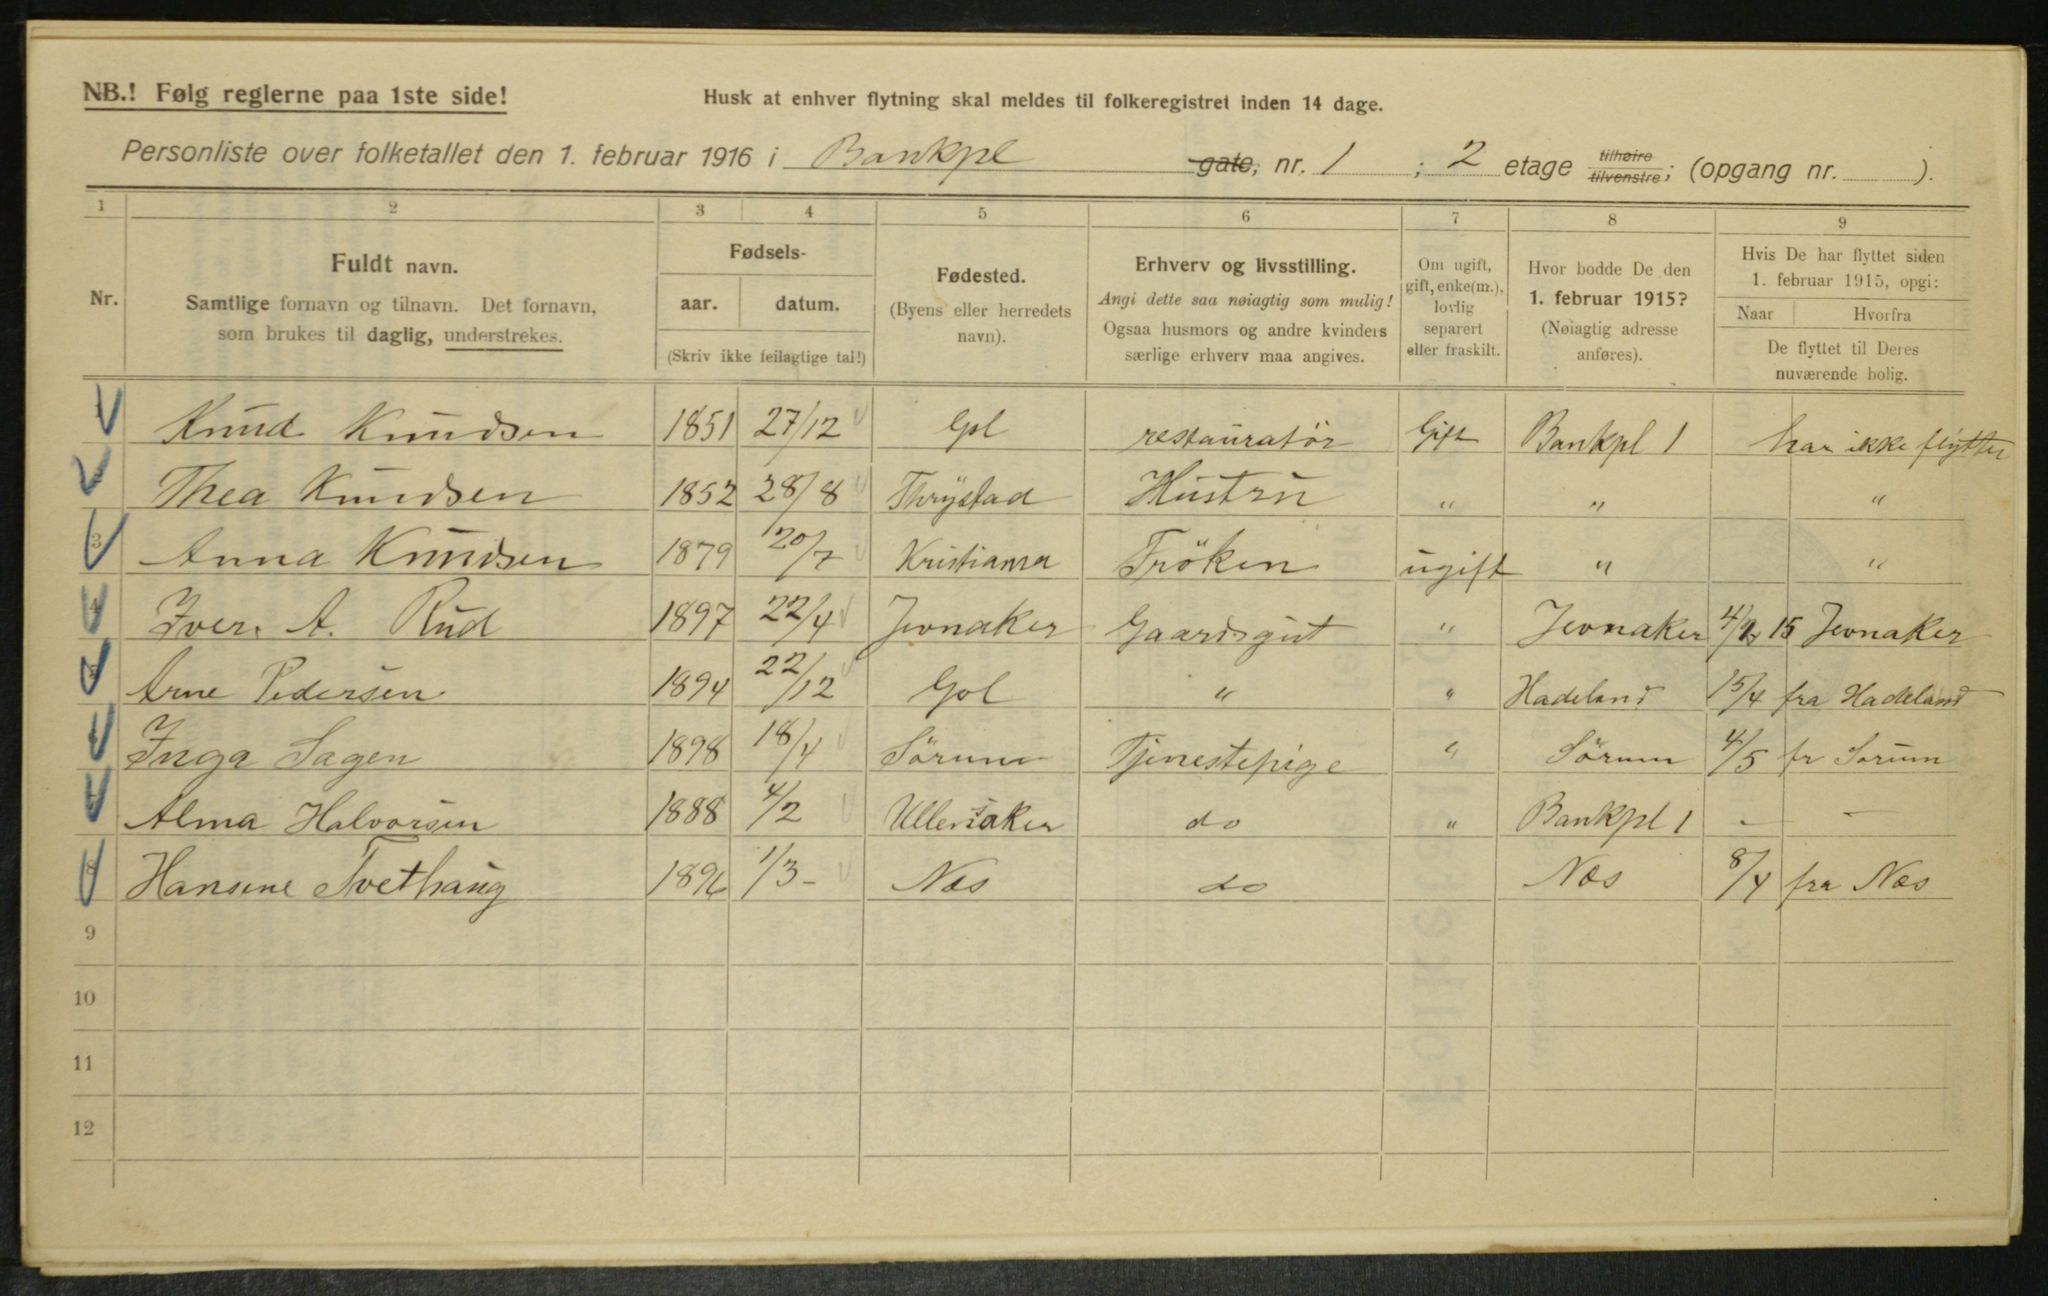 NB.! Følg reglerne paa 1ste side!
Husk at enhver flytning skal meldes til folkeregistret inden 14 dage.
Personliste over folketallet den 1. februar 1916 i Bankpl gate, nr. 1 ; 2 etage tilhøire tilvenstre; (opgang nr. ).
1 2 3 4 5 6 7 8 9
Nr.
Fuldt navn.
Samtlige fornavn og tilnavn. Det fornavn,
som brukes til daglig, understrekes.
Fødsels-
aar. datum.
(Skriv ikke feilagtige tal!)
Fødested.
(Byens eller herredets
navn).
Erhverv og livsstilling.
Angi dette saa nøiagtig som mulig!
Ogsaa husmors og andre kvinders
særlige erhverv maa angives.
Om ugift,
gift, enke(m.),
lovlig
separert
eller fraskilt.
Hvor bodde De den
1. februar 1915?
(Nøiagtig adresse
anføres).
Hvis De har flyttet siden
1. februar 1915, opgi:
Naar Hvorfra
De flyttet til Deres
nuværende bolig.
Knud Knudsen 1851 27/12 Gol restauratör Gift Bankpl 1 har ikke flyttet
Thea Knudsen 1852 28/8 Thrýstad Hustru " " "
3 Anna Knudsen 1879 20/7 Kristiania Fröken ugift " "
4 Iver A. Rud 1897 22/4 Jevnaker Gaardsgut " Jevnaker 15 Jevnaker
5 Arne Pedersen 1894 22/12 Gol " " Hadeland 15/4 fra Hadeland
Inga Sagen 1898 18/4 Sörum Tjenestepige " Sörum 4/5 fr Sorum
Alma Halvorsen 1888 4/2 Ullensaker do " Bankpl 1 - -
8 Hansine Tvethaug 1896 1/3 - Nes do Nes 8/4 fra Nes
9
10
11
12